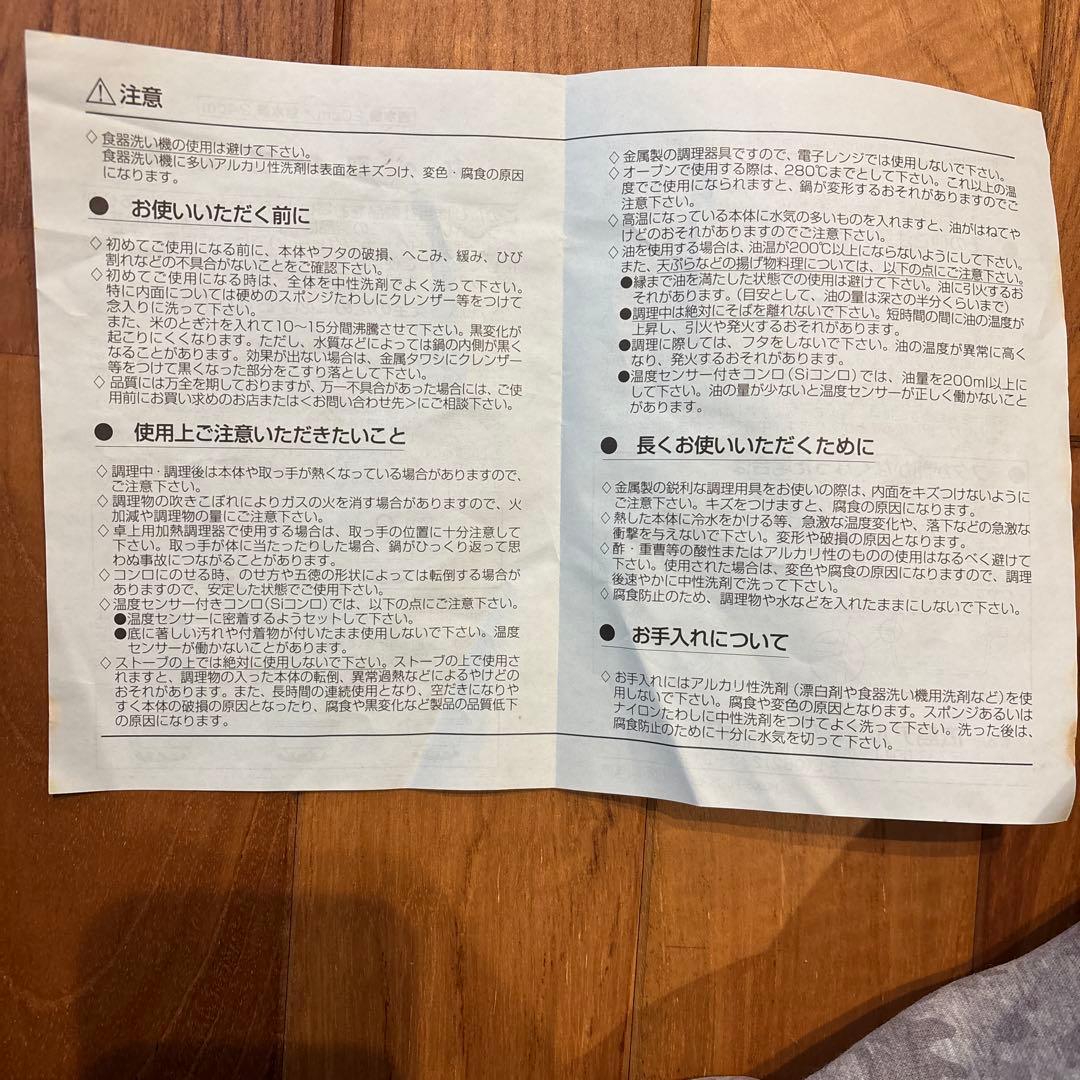 ⚠注意
◇食器洗い機の使用は避けて下さい。
食器洗い機に多いアルカリ性洗剤は表面をキズつけ、変色・腐食の原因
になります。
● お使いいただく前に
◇初めてご使用になる前に、本体やフタの破損、へこみ、緩み、ひび
割れなどの不具合がないことをご確認下さい。
◇初めてご使用になる時は、全体を中性洗剤でよく洗って下さい。
特に内面については硬めのスポンジたわしにクレンザー等をつけて
念入りに洗って下さい。
また、米のとぎ汁を入れて10〜15分間沸騰させて下さい。黒変化が
起こりにくくなります。ただし、水質などによっては鍋の内側が黒く
なることがあります。効果が出ない場合は、金属タワシにクレンザー
等をつけて黒くなった部分をこすり落として下さい。
◇品質には万全を期しておりますが、万一不具合があった場合には、ご使
用前にお買い求めのお店または<お問い合わせ先>にご相談下さい。
● 使用上ご注意いただきたいこと
◇調理中・調理後は本体や取っ手が熱くなっている場合がありますので、
ご注意下さい。
◇調理物の吹きこぼれによりガスの火を消す場合がありますので、火
加減や調理物の量にご注意下さい。
◇卓上用加熱調理器で使用する場合は、取っ手の位置に十分注意して
下さい。取っ手が体に当たったりした場合、鍋がひっくり返って思
わぬ事故につながることがあります。
◇コンロにのせる時、のせ方や五徳の形状によっては転倒する場合が
ありますので、安定した状態でご使用下さい。
◇温度センサー付きコンロ(Siコンロ)では、以下の点にご注意下さい。
●温度センサーに密着するようセットして下さい。
●底に著しい汚れや付着物が付いたまま使用しないで下さい。温度
センサーが働かないことがあります。
◇ストーブの上では絶対に使用しないで下さい。ストーブの上で使用さ
れますと、調理物の入った本体の転倒、異常過熱などによるやけどの
おそれがあります。また、長時間の連続使用となり、空だきになりや
すく本体の破損の原因となったり、腐食や黒変化など製品の品質低下
の原因になります。
◇金属製の調理器具ですので、電子レンジでは使用しないで下さい。
◇オーブンで使用する際は、280℃までとして下さい。これ以上の温
度でご使用になられますと、鍋が変形するおそれがありますのでご
注意下さい。
◇高温になっている本体に水気の多いものを入れますと、油がはねてや
けどのおそれがありますのでご注意下さい。
◇油を使用する場合は、油温が200℃以上にならないようにして下さい。
また、天ぷらなどの揚げ物料理については、以下の点にご注意下さい。
●縁まで油を満たした状態での使用は避けて下さい。油に引火するお
それがあります。(目安として、油の量は深さの半分くらいまで)
●調理中は絶対にそばを離れないで下さい。短時間の間に油の温度が
上昇し、引火や発火するおそれがあります。
●調理に際しては、フタをしないで下さい。油の温度が異常に高く
なり、発火するおそれがあります。
●温度センサー付きコンロ(Siコンロ)では、油量を200ml以上に
して下さい。油の量が少ないと温度センサーが正しく働かないこと
があります。
● 長くお使いいただくために
◇金属製の鋭利な調理用具をお使いの際は、内面をキズつけないように
ご注意下さい。キズをつけますと、腐食の原因になります。
◇熱した本体に冷水をかける等、急激な温度変化や、落下などの急激な
衝撃を与えないで下さい。変形や破損の原因となります。
◇酢・重曹等の酸性またはアルカリ性のものの使用はなるべく避けて
下さい。使用された場合は、変色や腐食の原因になりますので、調理
後速やかに中性洗剤で洗って下さい。
◇腐食防止のため、調理物や水などを入れたままにしないで下さい。
● お手入れについて
◇お手入れにはアルカリ性洗剤(漂白剤や食器洗い機用洗剤など)を使
用しないで下さい。腐食や変色の原因となります。スポンジあるいは
ナイロンたわしに中性洗剤をつけてよく洗って下さい。洗った後は、
腐食防止のために十分に水気を切って下さい。